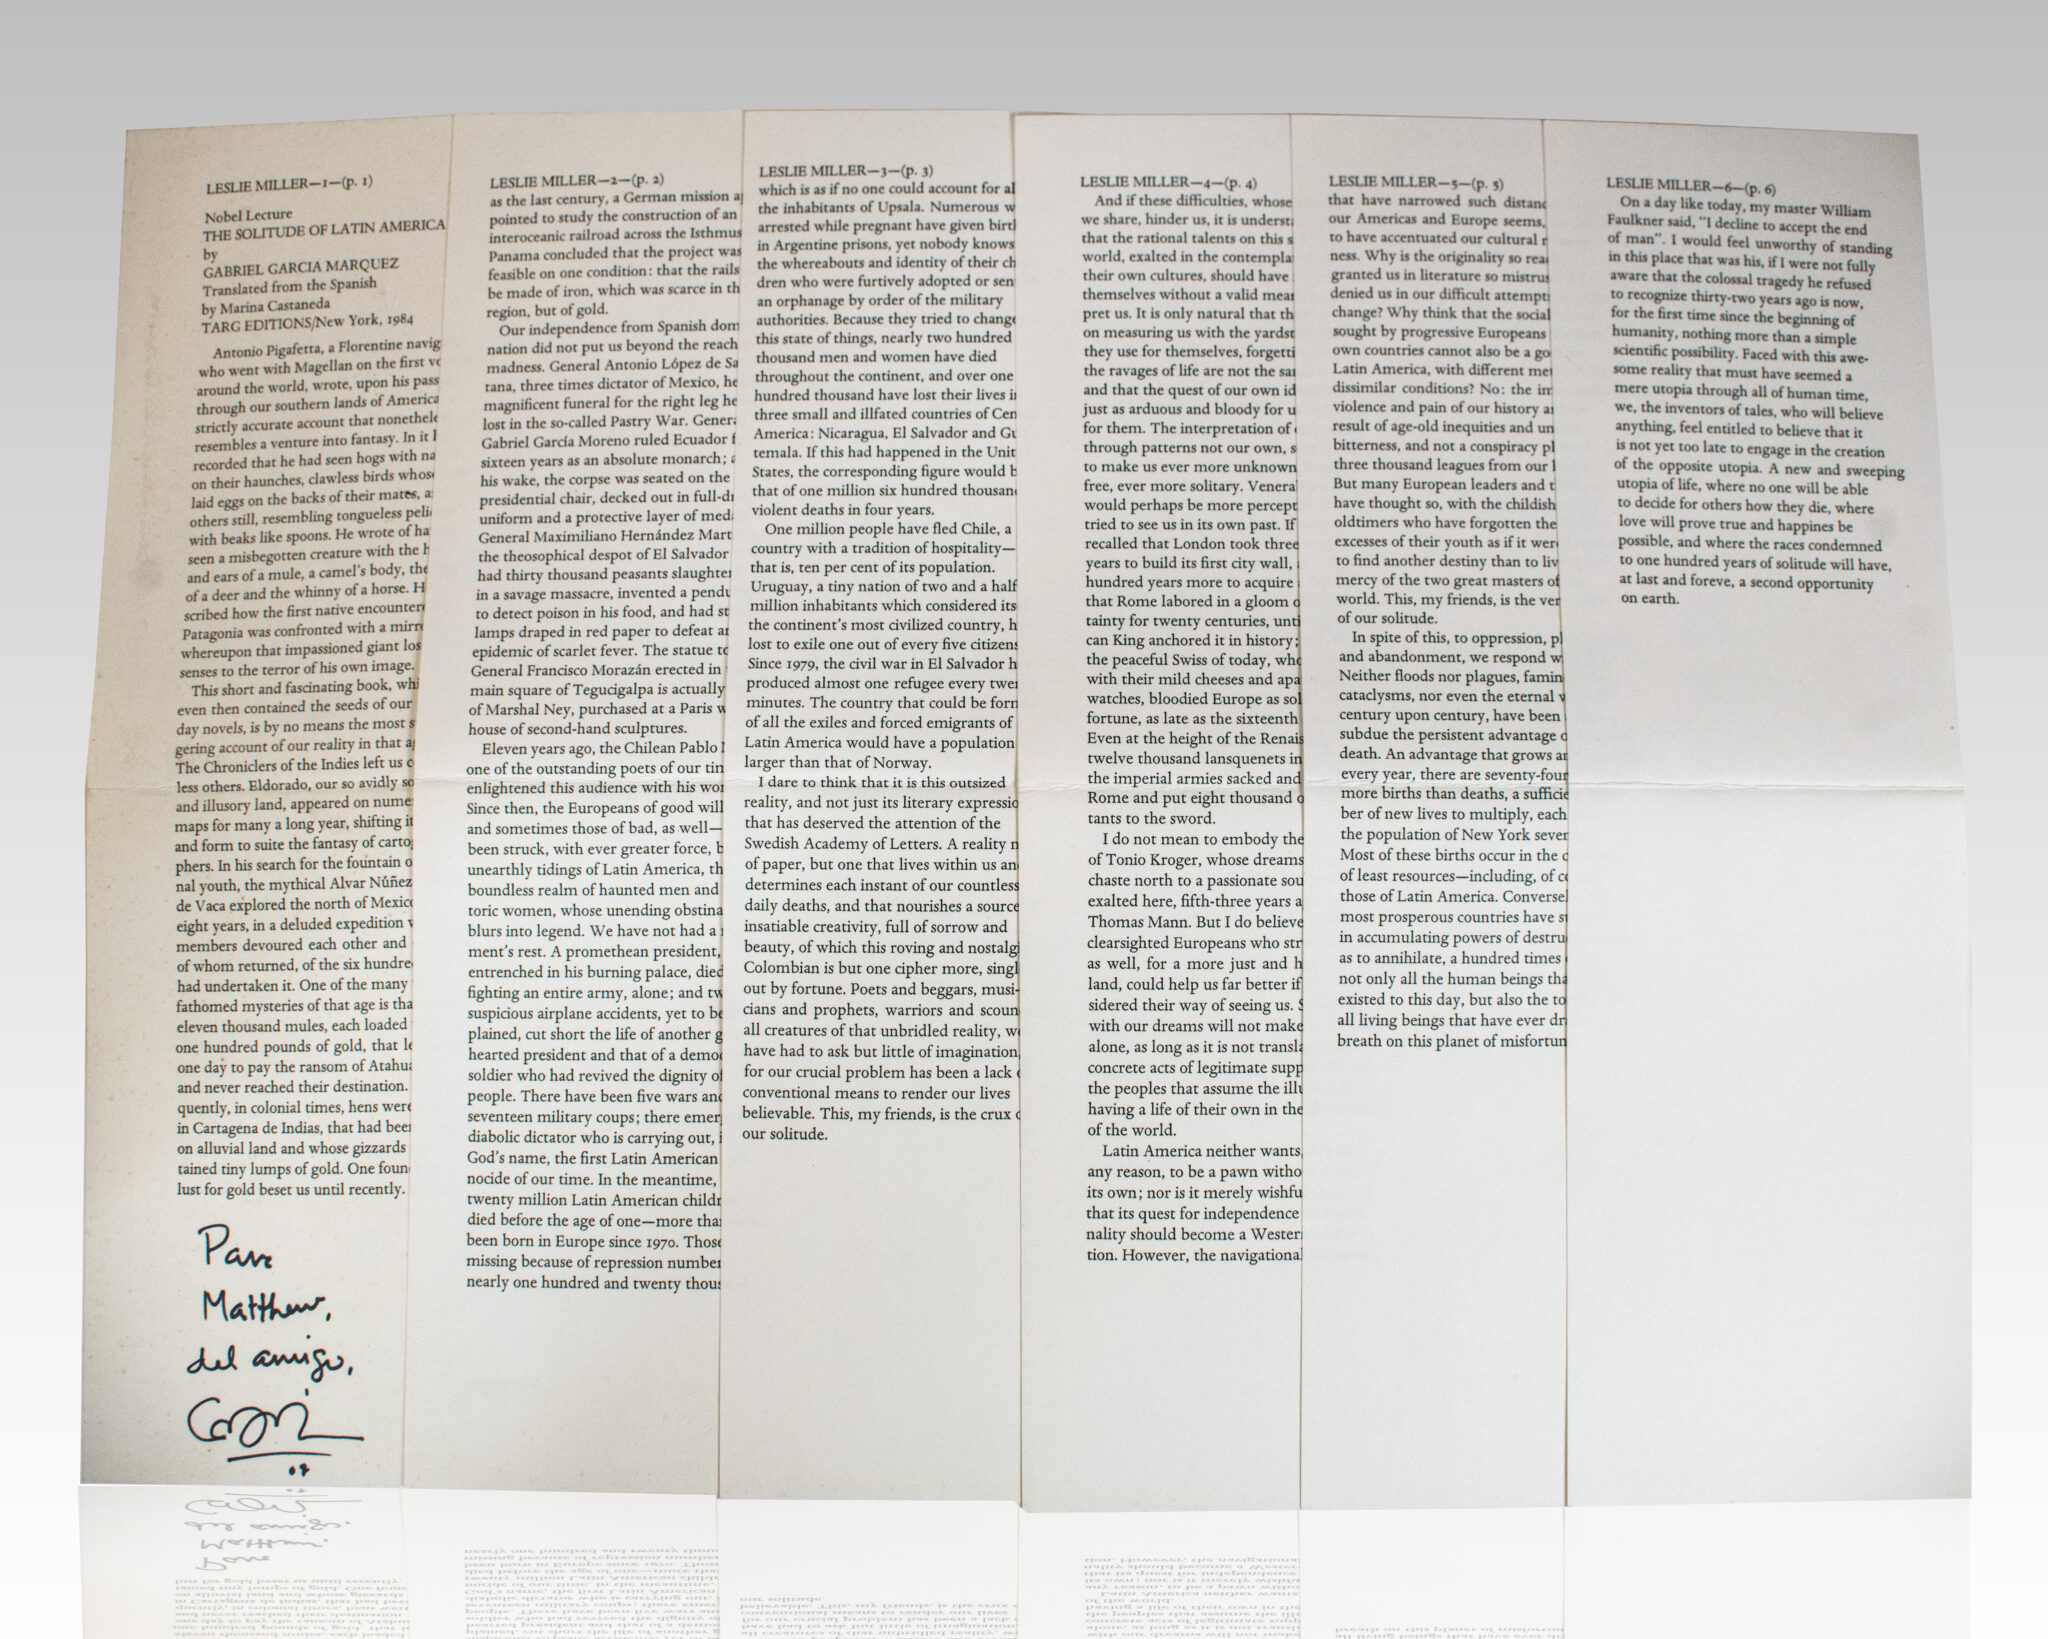 LESLIE MILLER—1—(p. 1)
Nobel Lecture
THE SOLITUDE OF LATIN AMERICA
by
GABRIEL GARCIA MARQUEZ
Translated from the Spanish
by Marina Castaneda
TARG EDITIONS/New York, 1984
Antonio Pigafetta, a Florentine navig
who went with Magellan on the first v
around the world, wrote, upon his pass
through our southern lands of America
strictly accurate account that nonethele
resembles a venture into fantasy. In it
recorded that he had seen hogs with na
on their haunches, clawless birds whose
laid eggs on the backs of their mates, a
others still, resembling tongueless peli
with beaks like spoons. He wrote of ha
seen a misbegotten creature with the h
and ears of a mule, a camel's body, the
of a deer and the whinny of a horse. H
scribed how the first native encounter
Patagonia was confronted with a mirr
whereupon that impassioned giant los
senses to the terror of his own image.
This short and fascinating book, whi
even then contained the seeds of our
day novels, is by no means the most s
gering account of our reality in that a
The Chroniclers of the Indies left us c
less others. Eldorado, our so avidly so
and illusory land, appeared on nume
maps for many a long year, shifting it
and form to suite the fantasy of carto
phers. In his search for the fountain o
nal youth, the mythical Alvar Núñez
de Vaca explored the north of Mexico
eight years, in a deluded expedition
members devoured each other and
of whom returned, of the six hundre
had undertaken it. One of the many
fathomed mysteries of that age is tha
eleven thousand mules, each loaded
one hundred pounds of gold, that le
one day to pay the ransom of Atahua
and never reached their destination.
quently, in colonial times, hens were
in Cartagena de Indias, that had been
on alluvial land and whose gizzards
tained tiny lumps of gold. One foun
lust for gold beset us until recently.
Para
Matthew,
del amigo,
Gabo
07
LESLIE MILLER—2—(p. 2)
as the last century, a German mission a
pointed to study the construction of an
interoceanic railroad across the Isthmus
Panama concluded that the project was
feasible on one condition: that the rails
be made of iron, which was scarce in th
region, but of gold.
Our independence from Spanish dom
nation did not put us beyond the reach
madness. General Antonio López de Sa
tana, three times dictator of Mexico, he
magnificent funeral for the right leg he
lost in the so-called Pastry War. Genera
Gabriel García Moreno ruled Ecuador f
sixteen years as an absolute monarch; a
his wake, the corpse was seated on the
presidential chair, decked out in full-dr
uniform and a protective layer of meda
General Maximiliano Hernández Mart
the theosophical despot of El Salvador
had thirty thousand peasants slaughter
in a savage massacre, invented a pendu
to detect poison in his food, and had st
lamps draped in red paper to defeat an
epidemic of scarlet fever. The statue to
General Francisco Morazán erected in
main square of Tegucigalpa is actually
of Marshal Ney, purchased at a Paris w
house of second-hand sculptures.
Eleven years ago, the Chilean Pablo N
one of the outstanding poets of our tim
enlightened this audience with his wor
Since then, the Europeans of good will
and sometimes those of bad, as well—
been struck, with ever greater force, b
unearthly tidings of Latin America, th
boundless realm of haunted men and
toric women, whose unending obstina
blurs into legend. We have not had a
ment's rest. A promethean president,
entrenched in his burning palace, died
fighting an entire army, alone; and tw
suspicious airplane accidents, yet to be
plained, cut short the life of another g
hearted president and that of a demo
soldier who had revived the dignity of
people. There have been five wars and
seventeen military coups; there emer
diabolic dictator who is carrying out, i
God's name, the first Latin American
nocide of our time. In the meantime,
twenty million Latin American childr
died before the age of one—more tha
been born in Europe since 1970. Those
missing because of repression number
nearly one hundred and twenty thous
LESLIE MILLER—3—(p. 3)
which is as if no one could account for al
the inhabitants of Upsala. Numerous w
arrested while pregnant have given birth
in Argentine prisons, yet nobody knows
the whereabouts and identity of their ch
dren who were furtively adopted or sen
an orphanage by order of the military
authorities. Because they tried to change
this state of things, nearly two hundred
thousand men and women have died
throughout the continent, and over one
hundred thousand have lost their lives in
three small and illfated countries of Cen
America: Nicaragua, El Salvador and Gu
temala. If this had happened in the Unit
States, the corresponding figure would b
that of one million six hundred thousand
violent deaths in four years.
One million people have fled Chile, a
country with a tradition of hospitality—
that is, ten per cent of its population.
Uruguay, a tiny nation of two and a half
million inhabitants which considered its
the continent's most civilized country, h
lost to exile one out of every five citizens
Since 1979, the civil war in El Salvador h
produced almost one refugee every twen
minutes. The country that could be form
of all the exiles and forced emigrants of
Latin America would have a population
larger than that of Norway.
I dare to think that it is this outsized
reality, and not just its literary expressio
that has deserved the attention of the
Swedish Academy of Letters. A reality n
of paper, but one that lives within us and
determines each instant of our countless
daily deaths, and that nourishes a source
insatiable creativity, full of sorrow and
beauty, of which this roving and nostalgi
Colombian is but one cipher more, singl
out by fortune. Poets and beggars, musi-
cians and prophets, warriors and scoun
all creatures of that unbridled reality, w
have had to ask but little of imagination,
for our crucial problem has been a lack
conventional means to render our lives
believable. This, my friends, is the crux o
our solitude.
LESLIE MILLER—4—(p. 4)
And if these difficulties, whose
we share, hinder us, it is understa
that the rational talents on this s
world, exalted in the contempla
their own cultures, should have
themselves without a valid mean
pret us. It is only natural that th
on measuring us with the yardst
they use for themselves, forgetti
the ravages of life are not the sam
and that the quest of our own id
just as arduous and bloody for u
for them. The interpretation of
through patterns not our own, s
to make us ever more unknown
free, ever more solitary. Venera
would perhaps be more percept
tried to see us in its own past. If
recalled that London took three
years to build its first city wall,
hundred years more to acquire
that Rome labored in a gloom o
tainty for twenty centuries, unti
can King anchored it in history;
the peaceful Swiss of today, who
with their mild cheeses and apa
watches, bloodied Europe as sol
fortune, as late as the sixteenth
Even at the height of the Renais
twelve thousand lansquenets in
the imperial armies sacked and
Rome and put eight thousand o
tants to the sword.
I do not mean to embody the
of Tonio Kroger, whose dreams
chaste north to a passionate sou
exalted here, fifth-three years a
Thomas Mann. But I do believe
clearsighted Europeans who str
as well, for a more just and h
land, could help us far better if
sidered their way of seeing us. S
with our dreams will not make
alone, as long as it is not transla
concrete acts of legitimate supp
the peoples that assume the illu
having a life of their own in the
of the world.
Latin America neither wants,
any reason, to be a pawn witho
its own; nor is it merely wishfu
that its quest for independence
nality should become a Wester
tion. However, the navigational
LESLIE MILLER—5—(p. 5)
that have narrowed such distanc
our Americas and Europe seems,
to have accentuated our cultural r
ness. Why is the originality so rea
granted us in literature so mistrus
denied us in our difficult attempt
change? Why think that the social
sought by progressive Europeans
own countries cannot also be a go
Latin America, with different met
dissimilar conditions? No: the im
violence and pain of our history a
result of age-old inequities and un
bitterness, and not a conspiracy pl
three thousand leagues from our
But many European leaders and t
have thought so, with the childish
oldtimers who have forgotten the
excesses of their youth as if it were
to find another destiny than to liv
mercy of the two great masters of
world. This, my friends, is the ver
of our solitude.
In spite of this, to oppression, pl
and abandonment, we respond w
Neither floods nor plagues, famin
cataclysms, nor even the eternal
century upon century, have been
subdue the persistent advantage o
death. An advantage that grows an
every year, there are seventy-four
more births than deaths, a sufficie
ber of new lives to multiply, each
the population of New York seven
Most of these births occur in the c
of least resources—including, of co
those of Latin America. Conversel
most prosperous countries have s
in accumulating powers of destru
as to annihilate, a hundred times
not only all the human beings tha
existed to this day, but also the to
all living beings that have ever dr
breath on this planet of misfortun
LESLIE MILLER—6—(p. 6)
On a day like today, my master William
Faulkner said, "I decline to accept the end
of man". I would feel unworthy of standing
in this place that was his, if I were not fully
aware that the colossal tragedy he refused
to recognize thirty-two years ago is now,
for the first time since the beginning of
humanity, nothing more than a simple
scientific possibility. Faced with this awe-
some reality that must have seemed a
mere utopia through all of human time,
we, the inventors of tales, who will believe
anything, feel entitled to believe that it
is not yet too late to engage in the creation
of the opposite utopia. A new and sweeping
utopia of life, where no one will be able
to decide for others how they die, where
love will prove true and happines be
possible, and where the races condemned
to one hundred years of solitude will have,
at last and foreve, a second opportunity
on earth.